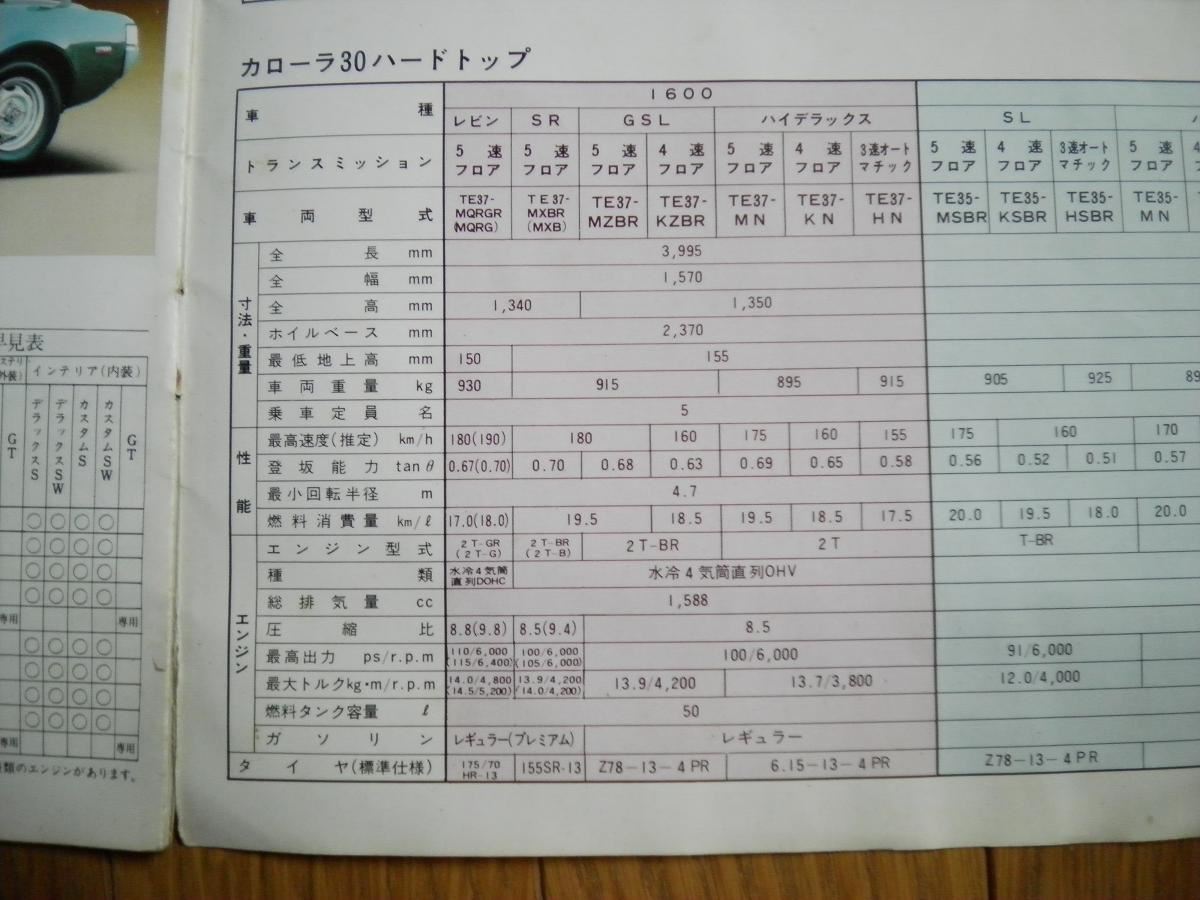 カローラ30ハードトップ
車種 1600
レビン SR GSL ハイデラックス SL
トランスミッション 5速フロア 5速フロア 5速フロア 4速フロア 5速フロア 4速フロア 3速オートマチック 5速フロア 4速フロア 3速オートマチック 5速フロア
車両型式 TE37-MQRGR(MQRG) TE37-MXBR(MXB) TE37-MZBR TE37-KZBR TE37-MN TE37-KN TE37-HN TE35-MSBR TE35-KSBR TE35-HSBR TE35-MN
寸法・重量
全長 mm 3,995
全幅 mm 1,570
全高 mm 1,340 1,350
ホイルベース mm 2,370
最低地上高 mm 150 155
車両重量 kg 930 915 895 915 905 925
乗車定員 名 5
性能
最高速度(推定) km/h 180(190) 180 160 175 160 155 175 160 170
登坂能力 tanθ 0.67(0.70) 0.70 0.68 0.63 0.69 0.65 0.58 0.56 0.52 0.51 0.57
最小回転半径 m 4.7
燃料消費量 km/ℓ 17.0(18.0) 19.5 18.5 19.5 18.5 17.5 20.0 19.5 18.0 20.0
エンジン
エンジン型式 2T-GR(2T-G) 2T-BR(2T-B) 2T-BR 2T T-BR
種類 水冷4気筒直列DOHC 水冷4気筒直列OHV
総排気量 cc 1,588
圧縮比 8.8(9.8) 8.5(9.4) 8.5
最高出力 ps/r.p.m 110/6,000(115/6,400) 100/6,000(105/6,000) 100/6,000 91/6,000
最大トルクkg・m/r.p.m 14.0/4,800(14.5/5,200) 13.9/4,200(14.0/4,200) 13.9/4,200 13.7/3,800 12.0/4,000
燃料タンク容量 ℓ 50
ガソリン レギュラー(プレミアム) レギュラー
タイヤ(標準仕様) 175/70HR-13 155SR-13 Z78-13-4PR 6.15-13-4PR Z78-13-4PR
早見表
インテリア(内装)
GT デラックスS デラックスSW カスタムS カスタムSW GT
○ ○ ○ ○
○ ○ ○ ○
○ ○ ○ ○
○ ○ ○ ○
専用 専用
○ ○ ○ ○
○ ○ ○ ○
○ ○ ○ ○
○ ○ ○ ○
専用 専用
類のエンジンがあります。